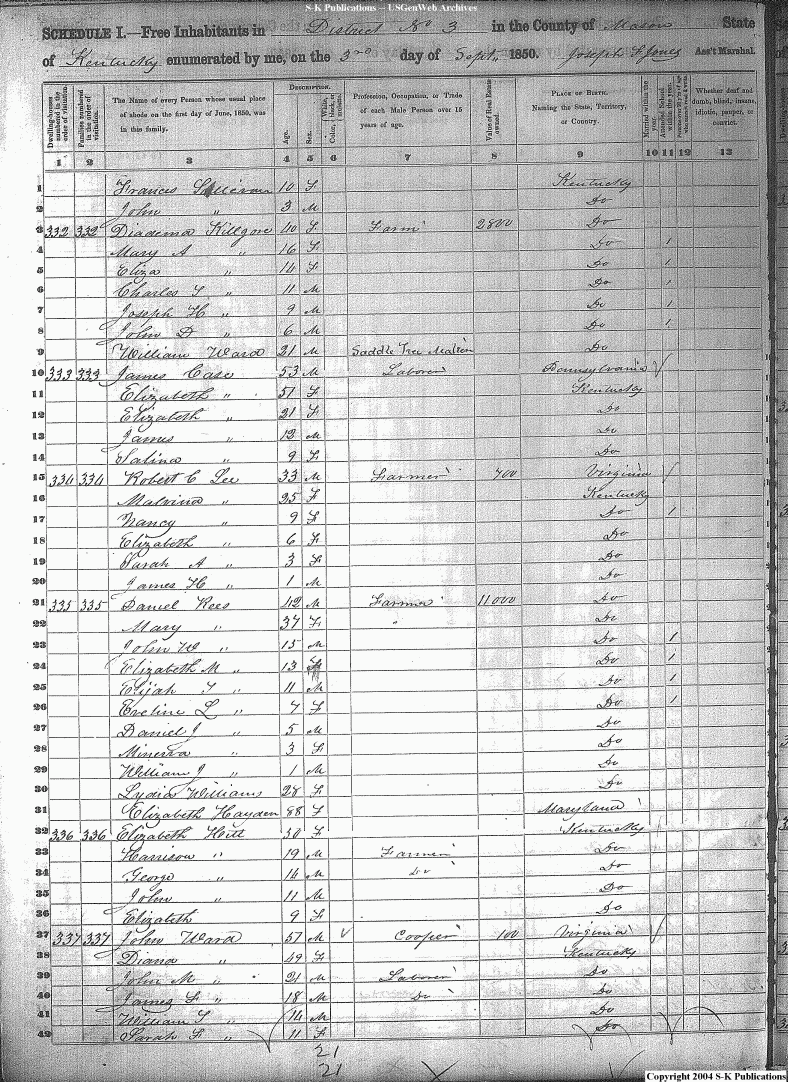 S-K Publications -- USGenWeb Archives
SCHEDULE I.—Free Inhabitants in District No 3 in the County of Mason State
of Kentucky enumerated by me, on the 3rd day of Sept. 1850. Joseph F. Jones Ass't Marshal.
Dwelling-houses numbered in the order of visitation.
Families numbered in the order of visitation.
The Name of every Person whose usual place of abode on the first day of June, 1850, was in this family.
DESCRIPTION.
Age.
Sex.
Color, White, black, or mulatto.
Profession, Occupation, or Trade of each Male Person over 15 years of age.
Value of Real Estate owned.
PLACE OF BIRTH. Naming the State, Territory, or Country.
Married within the year.
Attended School within the year.
Persons over 20 y'rs of age who cannot read & write.
Whether deaf and dumb, blind, insane, idiotic, pauper, or convict.
1 2 3 4 5 6 7 8 9 10 11 12 13
1 Frances Sullivan 10 F Kentucky
2 John " 3 M Do
3 332 332 Diadema Killgore 40 F Farm 2800 Do
4 Mary A " 16 F Do 1
5 Eliza " 14 F Do 1
6 Charles T " 11 M Do 1
7 Joseph H " 9 M Do 1
8 John D " 6 M Do 1
9 William Ward 21 M Saddle Tree Maker Do
10 333 333 James Case 53 M Laborer Pennsylvania /
11 Elizabeth " 51 F Kentucky
12 Elizabeth " 21 F Do
13 James " 12 M Do
14 Salina " 9 F Do
15 334 334 Robert C Lee 33 M Farmer 700 Virginia /
16 Malvina " 25 F Kentucky
17 Nancy " 9 F Do 1
18 Elizabeth " 6 F Do
19 Sarah A " 3 F Do
20 James H " 1 M Do
21 335 335 Daniel Rees 42 M Farmer 11000 Do
22 Mary " 37 F " Do
23 John W " 15 M Do 1
24 Elizabeth M " 13 F Do 1
25 Elijah T " 11 M Do 1
26 Eveline L " 7 F Do 1
27 Daniel J " 5 M Do
28 Minerva " 3 F Do
29 William J " 1 M Do
30 Lydia Williams 28 F Do
31 Elizabeth Hayden 88 F Maryland
32 336 336 Elizabeth Hill 50 F Kentucky
33 Harrison " 19 M Farmer Do
34 George " 14 M Do Do
35 John " 11 M Do
36 Elizabeth 9 F Do
37 337 337 John Ward 57 M Cooper 100 Virginia /
38 Diana " 49 F Kentucky
39 John M " 21 M Laborer Do
40 James F " 18 M Do Do
41 William T " 14 M Do
42 Sarah F " 11 F Do
21
21
Copyright 2004 S-K Publications